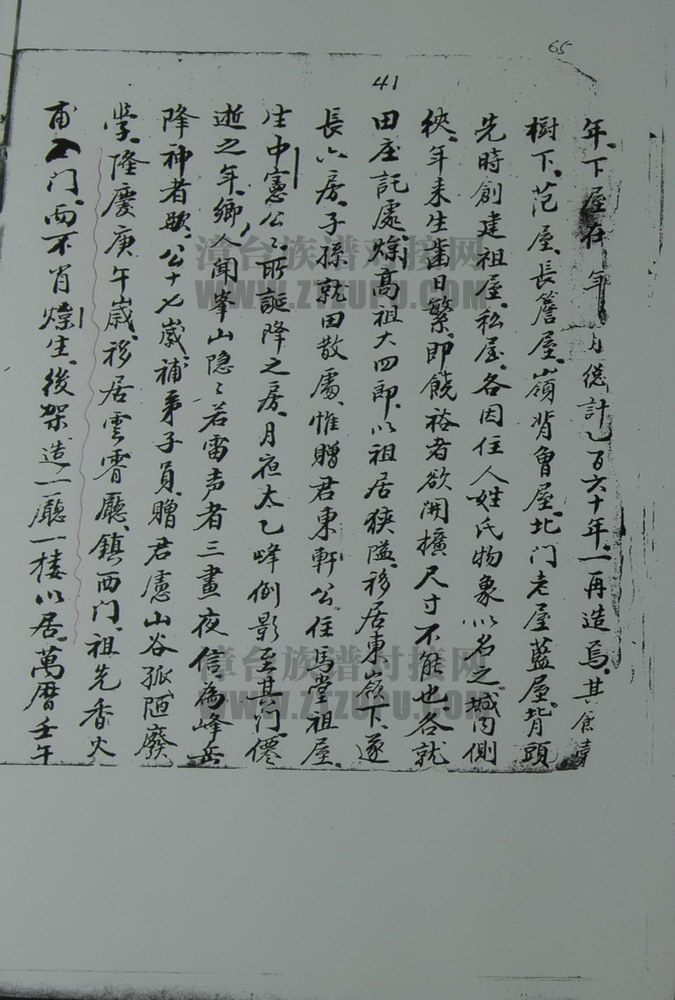 65
41
年、下屋在 年 月、總計乙百六十年、一再造焉、其倉
樹下、范屋、長簷屋、嶺背曾屋、北门老屋、藍屋、背頭
先時創建祖屋、私屋、各因住人姓氏物象以名之、城内側
狹、年来生齒日繁、即饒裕者欲開擴尺寸不能也、各就
田庄託處、燦高祖大四郎、以祖居狭隘、移居東嶺下、遂
長六房、子孫就田散處、惟贈君東軒公住馬堂祖屋、
生中憲公、公所誕降之房、月夜太乙峰倒影至其门、僊
逝之年、鄉人聞峯山隐隐若雷声者三晝夜、信為峰岳
降神者歟、公十七歲、補弟子員、贈君慮山谷孤陋廢
學、隆慶庚午歲、移居雲霄廳、鎮西门、祖先香火
甫入门、而不肖燦生、後架造一廳一楼以居、萬曆壬午
漳台族谱对接网
WWW.ZTZUPU.COM
漳台族谱对接网
WWW.ZTZUPU.COM